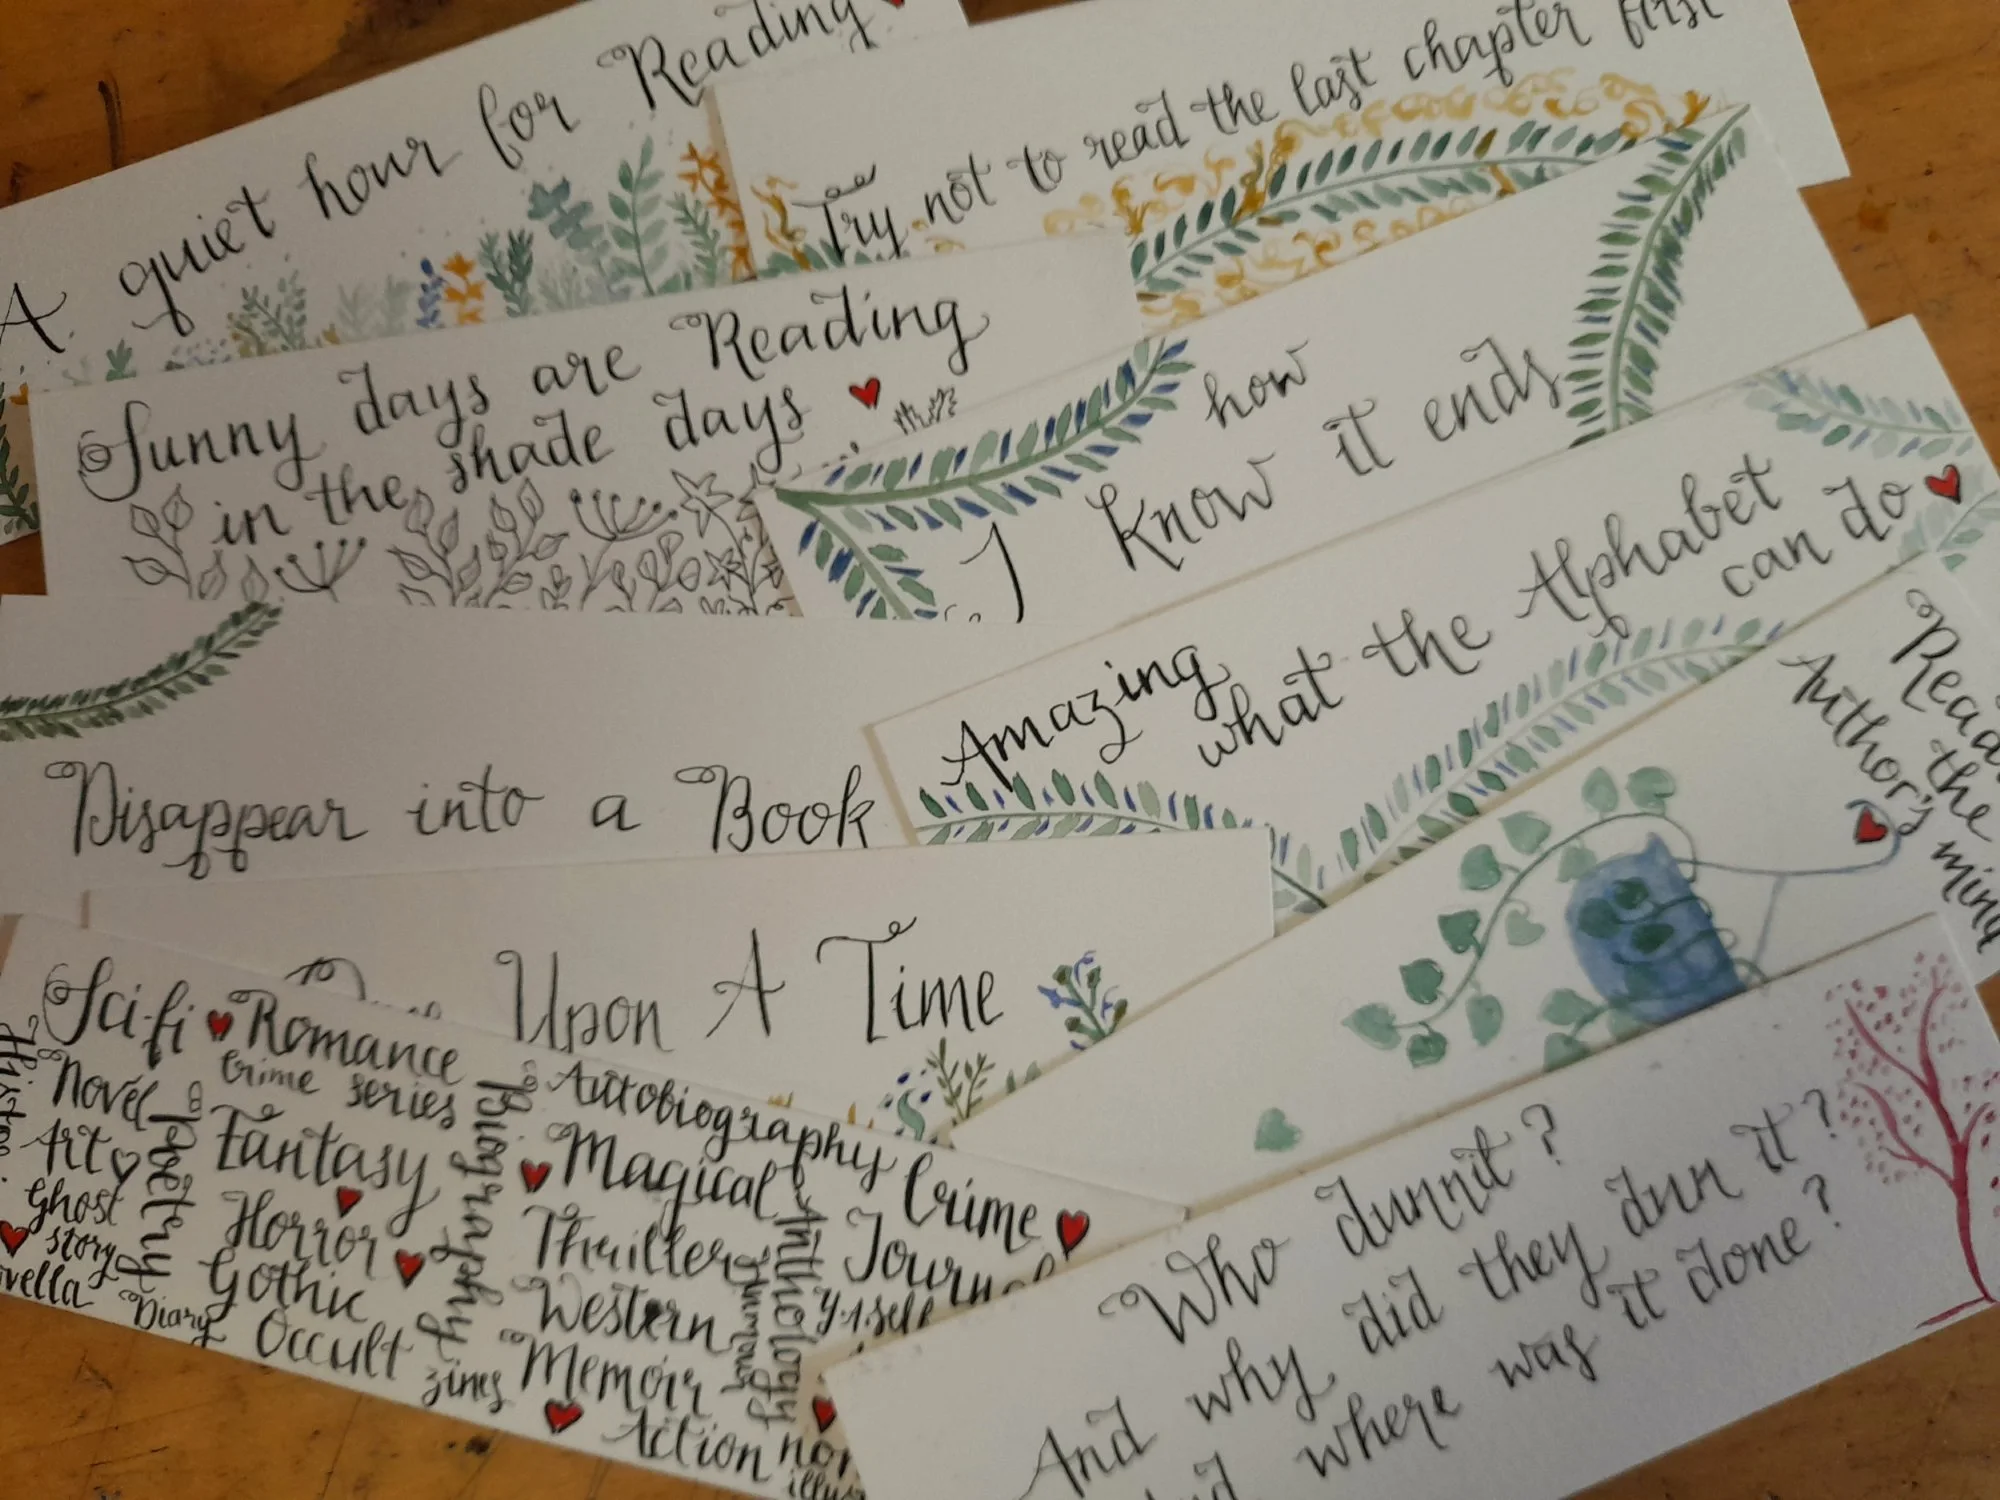 A quiet hour for Reading
Try not to read the last chapter first
Sunny days are Reading
in the shade days
I know how
it ends
Amazing
what the Alphabet
can do
Read
the
Author's
mind
Disappear into a Book
Upon A Time
Sci-fi Romance
Novel Crime series
Art Poetry Fantasy
Biography
Autobiography
Magical
Crime
Ghost
story
Horror
Gothic
Thriller
Anthology
Diary
Occult
zines
Western
Memoir
Action
Who dunnit?
And why did they dun it?
where was it done?